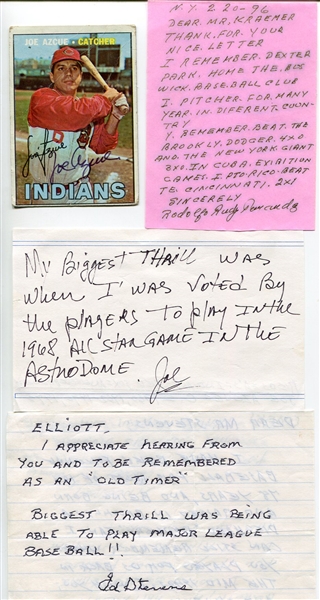 JOE AZCUE • CATCHER
Joe Azcue
Joe Azcue
INDIANS
N.Y. 2-20-96
DEAR. MR. KRAEMER
THANK. FOR. YOUR
NICE. LETTER
I REMEMBER. DEXTER
PARK. HOME THE. BUS
WICK. BASEBALL CLUB
I. PITCHER. FOR. MANY
YEAR. IN. DIFERENT. COUN-
TRY
Y. REMEMBER. BEAT. THE
BROOKLY. DODGER. 4X0
AND. THE NEW YORK GIANT
IN CUBA. EXIBITION
GAMES. I PTO. RICO. BEAT
TE. CINCINNATI. 2X1
SINCERELY
Rodolfo
My Biggest Thrill was
when I was voted By
the players To play In the
1968 All Star Game In the
AstroDome. Joe
ELLIOTT,
I APPRECIATE HEARING FROM
YOU AND TO BE REMEMBERED
AS AN "OLD TIMER"
BIGGEST THRILL WAS BEING
ABLE TO PLAY MAJOR LEAGUE
BASEBALL!!
Ed Stevens